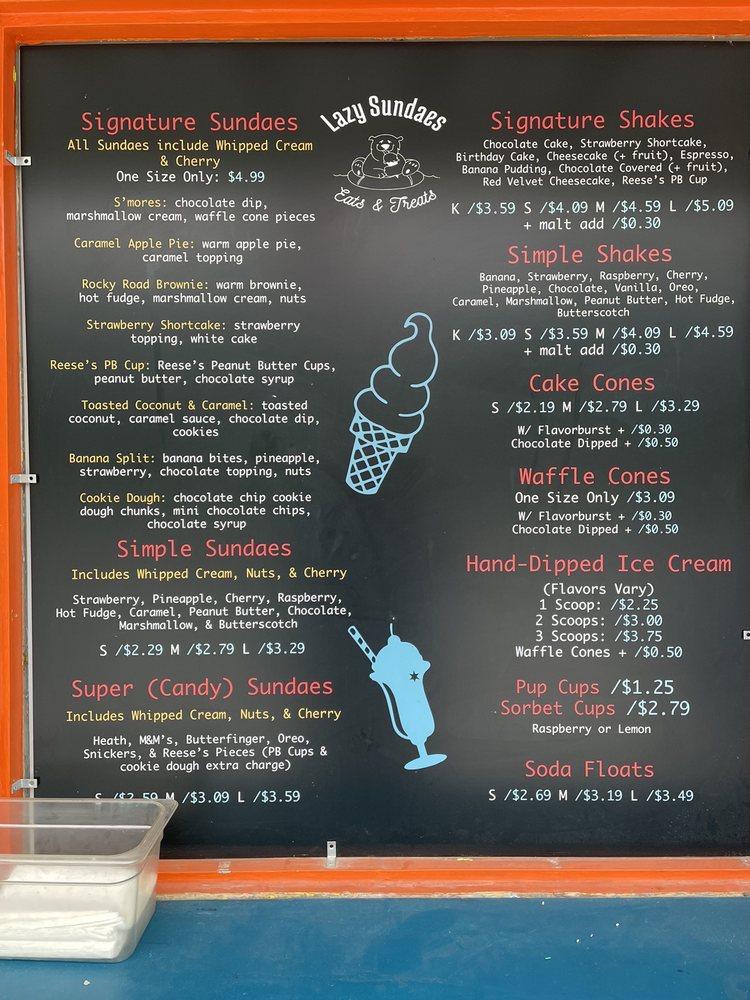 Lazy Sundaes
Eats & Treats
Signature Sundaes
All Sundaes include Whipped Cream
& Cherry
One Size Only: $4.99
S'mores: chocolate dip,
marshmallow cream, waffle cone pieces
Caramel Apple Pie: warm apple pie,
caramel topping
Rocky Road Brownie: warm brownie,
hot fudge, marshmallow cream, nuts
Strawberry Shortcake: strawberry
topping, white cake
Reese's PB Cup: Reese's Peanut Butter Cups,
peanut butter, chocolate syrup
Toasted Coconut & Caramel: toasted
coconut, caramel sauce, chocolate dip,
cookies
Banana Split: banana bites, pineapple,
strawberry, chocolate topping, nuts
Cookie Dough: chocolate chip cookie
dough chunks, mini chocolate chips,
chocolate syrup
Simple Sundaes
Includes Whipped Cream, Nuts, & Cherry
Strawberry, Pineapple, Cherry, Raspberry,
Hot Fudge, Caramel, Peanut Butter, Chocolate,
Marshmallow, & Butterscotch
S /$2.29 M /$2.79 L /$3.29
Super (Candy) Sundaes
Includes Whipped Cream, Nuts, & Cherry
Heath, M&M's, Butterfinger, Oreo,
Snickers, & Reese's Pieces (PB Cups &
cookie dough extra charge)
S /$2.59 M /$3.09 L /$3.59
Signature Shakes
Chocolate Cake, Strawberry Shortcake,
Birthday Cake, Cheesecake (+ fruit), Espresso,
Banana Pudding, Chocolate Covered (+ fruit),
Red Velvet Cheesecake, Reese's PB Cup
K /$3.59 S /$4.09 M /$4.59 L /$5.09
+ malt add /$0.30
Simple Shakes
Banana, Strawberry, Raspberry, Cherry,
Pineapple, Chocolate, Vanilla, Oreo,
Caramel, Marshmallow, Peanut Butter, Hot Fudge,
Butterscotch
K /$3.09 S /$3.59 M /$4.09 L /$4.59
+ malt add /$0.30
Cake Cones
S /$2.19 M /$2.79 L /$3.29
W/ Flavorburst + /$0.30
Chocolate Dipped + /$0.50
Waffle Cones
One Size Only /$3.09
W/ Flavorburst + /$0.30
Chocolate Dipped + /$0.50
Hand-Dipped Ice Cream
(Flavors Vary)
1 Scoop: /$2.25
2 Scoops: /$3.00
3 Scoops: /$3.75
Waffle Cones + /$0.50
Pup Cups /$1.25
Sorbet Cups /$2.79
Raspberry or Lemon
Soda Floats
S /$2.69 M /$3.19 L /$3.49